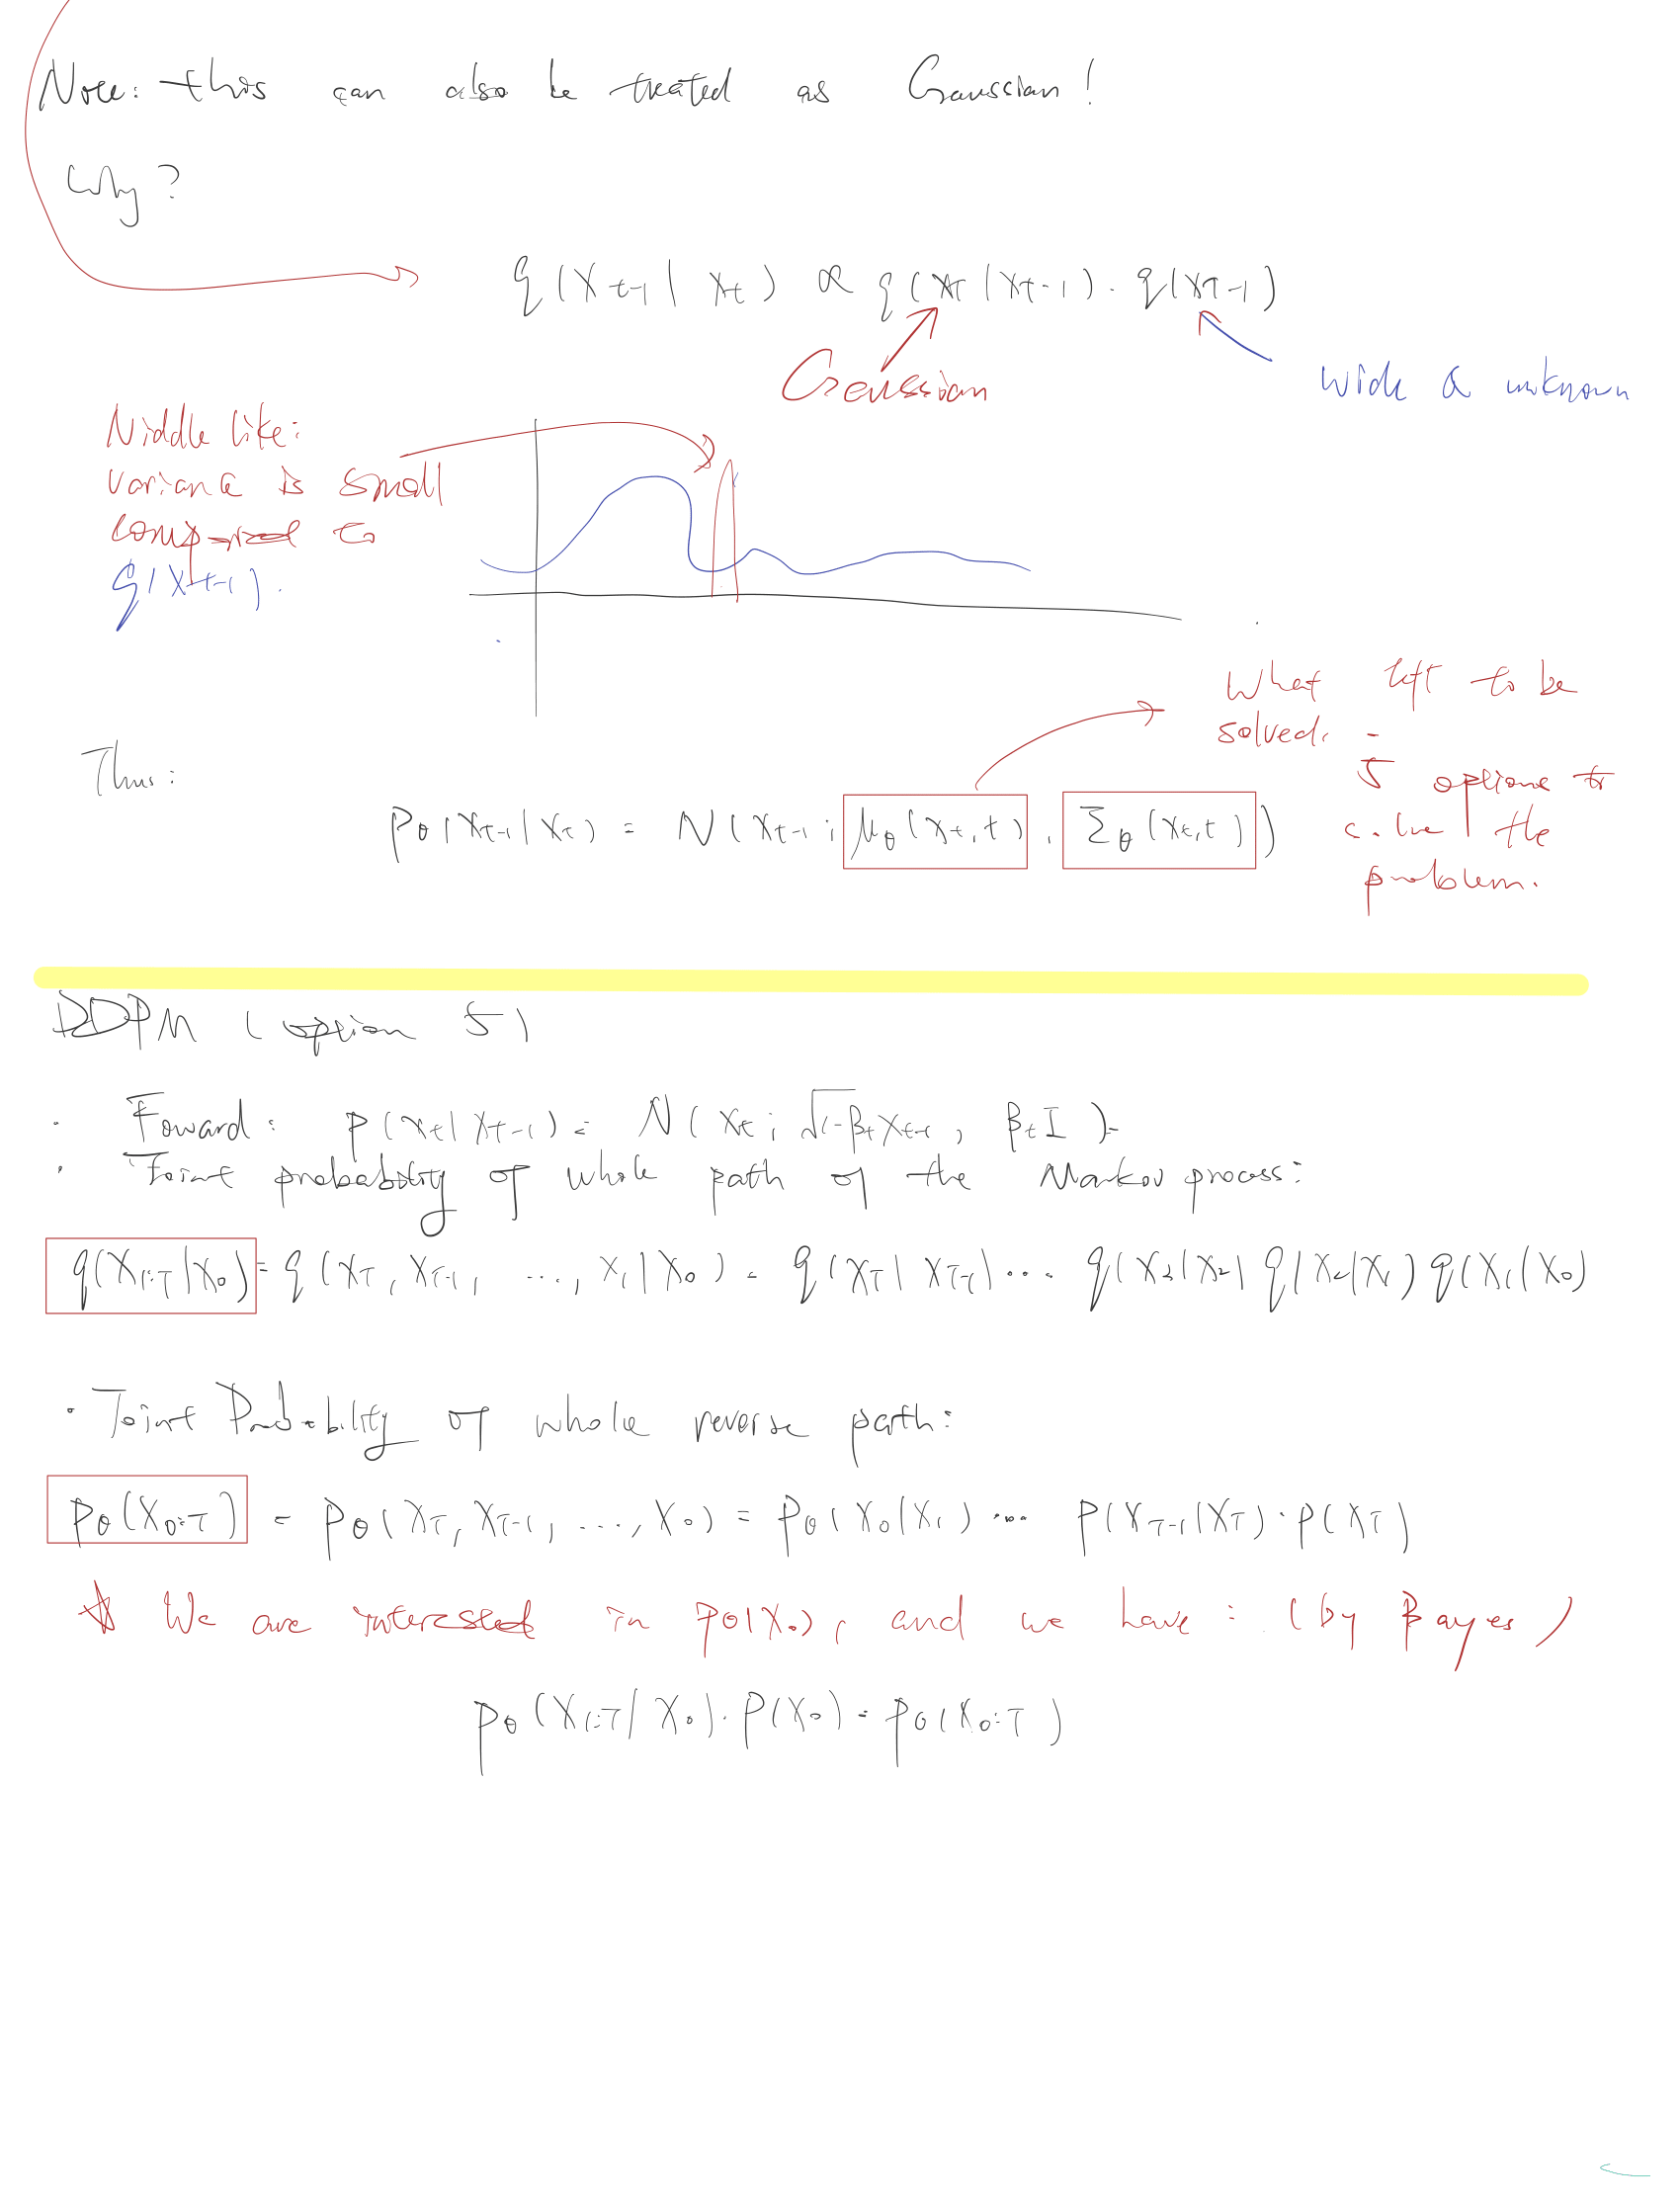 Note: this can also be treated as Gaussian!
Why?
q(x_{t-1} | x_t) ∝ q(x_t | x_{t-1}) · q(x_{t-1})
Gaussian
wide & unknown
Niddle like:
variance is small
compared to
q(x_{t-1}).
What left to be
solved.
5 options to
solve the
problem.
Thus:
p_θ(x_{t-1} | x_t) = N(x_{t-1}; μ_θ(x_t, t), Σ_θ(x_t, t))
DDPM (option 5)
· Foward: p(x_t | x_{t-1}) = N(x_t; √(1-β_t) x_{t-1}, β_t I)
· Joint probability of whole path of the Markov process:
q(x_{1:T} | x_0) = q(x_T, x_{T-1}, ..., x_1 | x_0) = q(x_T | x_{T-1}) ... q(x_3 | x_2) q(x_2 | x_1) q(x_1 | x_0)
· Joint Probability of whole reverse path:
p_θ(x_{0:T}) = p_θ(x_T, x_{T-1}, ..., x_0) = p_θ(x_0 | x_1) ... p(x_{T-1} | x_T) · p(x_T)
☆ We are interested in p_θ(x_0), and we have: (by Bayes)
p_θ(x_{1:T} | x_0) · p(x_0) = p_θ(x_{0:T})